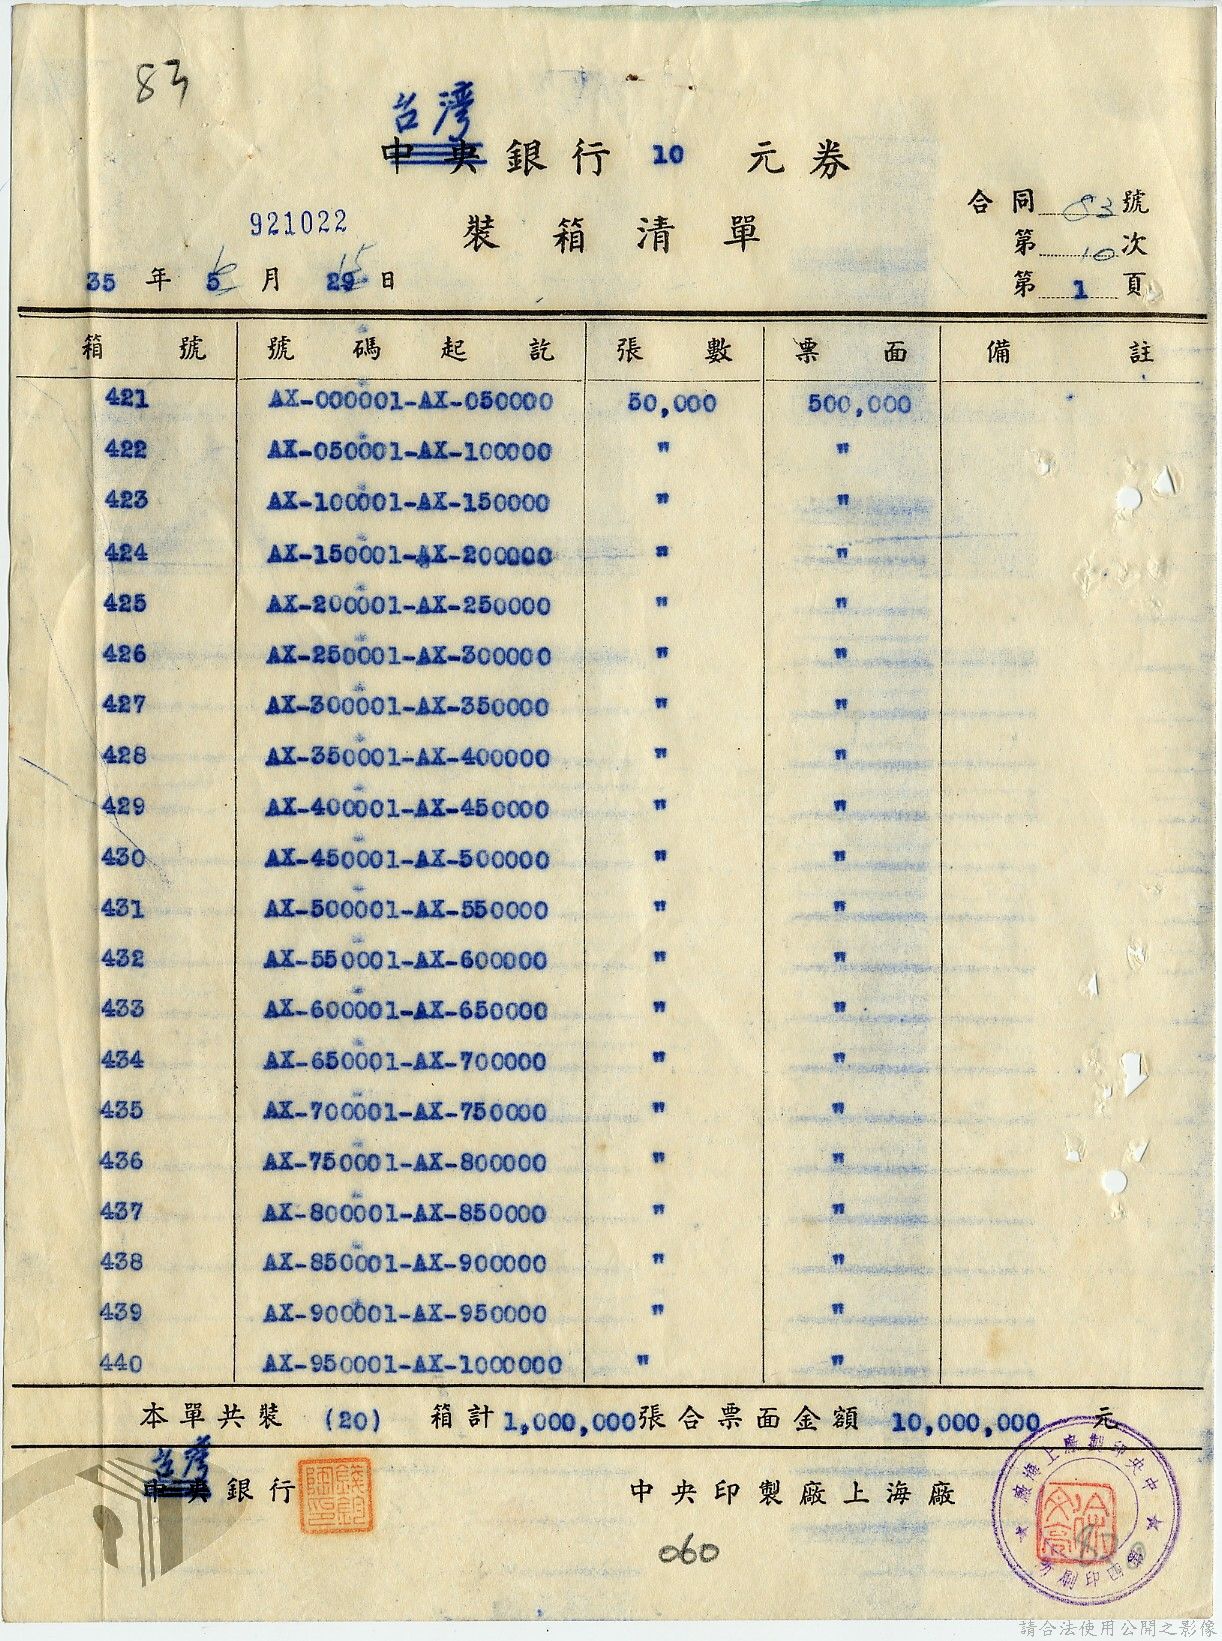 83
台灣
中央銀行 10 元券
合同 83 號
921022
裝箱清單
第 10 次
35 年 5 6 月 29 15 日
第 1 頁
箱號 號碼起訖 張數 票面 備註
421 AX-000001-AX-050000 50,000 500,000
422 AX-050001-AX-100000 " "
423 AX-100001-AX-150000 " "
424 AX-150001-AX-200000 " "
425 AX-200001-AX-250000 " "
426 AX-250001-AX-300000 " "
427 AX-300001-AX-350000 " "
428 AX-350001-AX-400000 " "
429 AX-400001-AX-450000 " "
430 AX-450001-AX-500000 " "
431 AX-500001-AX-550000 " "
432 AX-550001-AX-600000 " "
433 AX-600001-AX-650000 " "
434 AX-650001-AX-700000 " "
435 AX-700001-AX-750000 " "
436 AX-750001-AX-800000 " "
437 AX-800001-AX-850000 " "
438 AX-850001-AX-900000 " "
439 AX-900001-AX-950000 " "
440 AX-950001-AX-1000000 " "
本單共裝 (20) 箱計 1,000,000 張合票面金額 10,000,000 元
台灣
中央銀行
中央印製廠上海廠
中央印製廠上海廠
060
請合法使用公開之影像